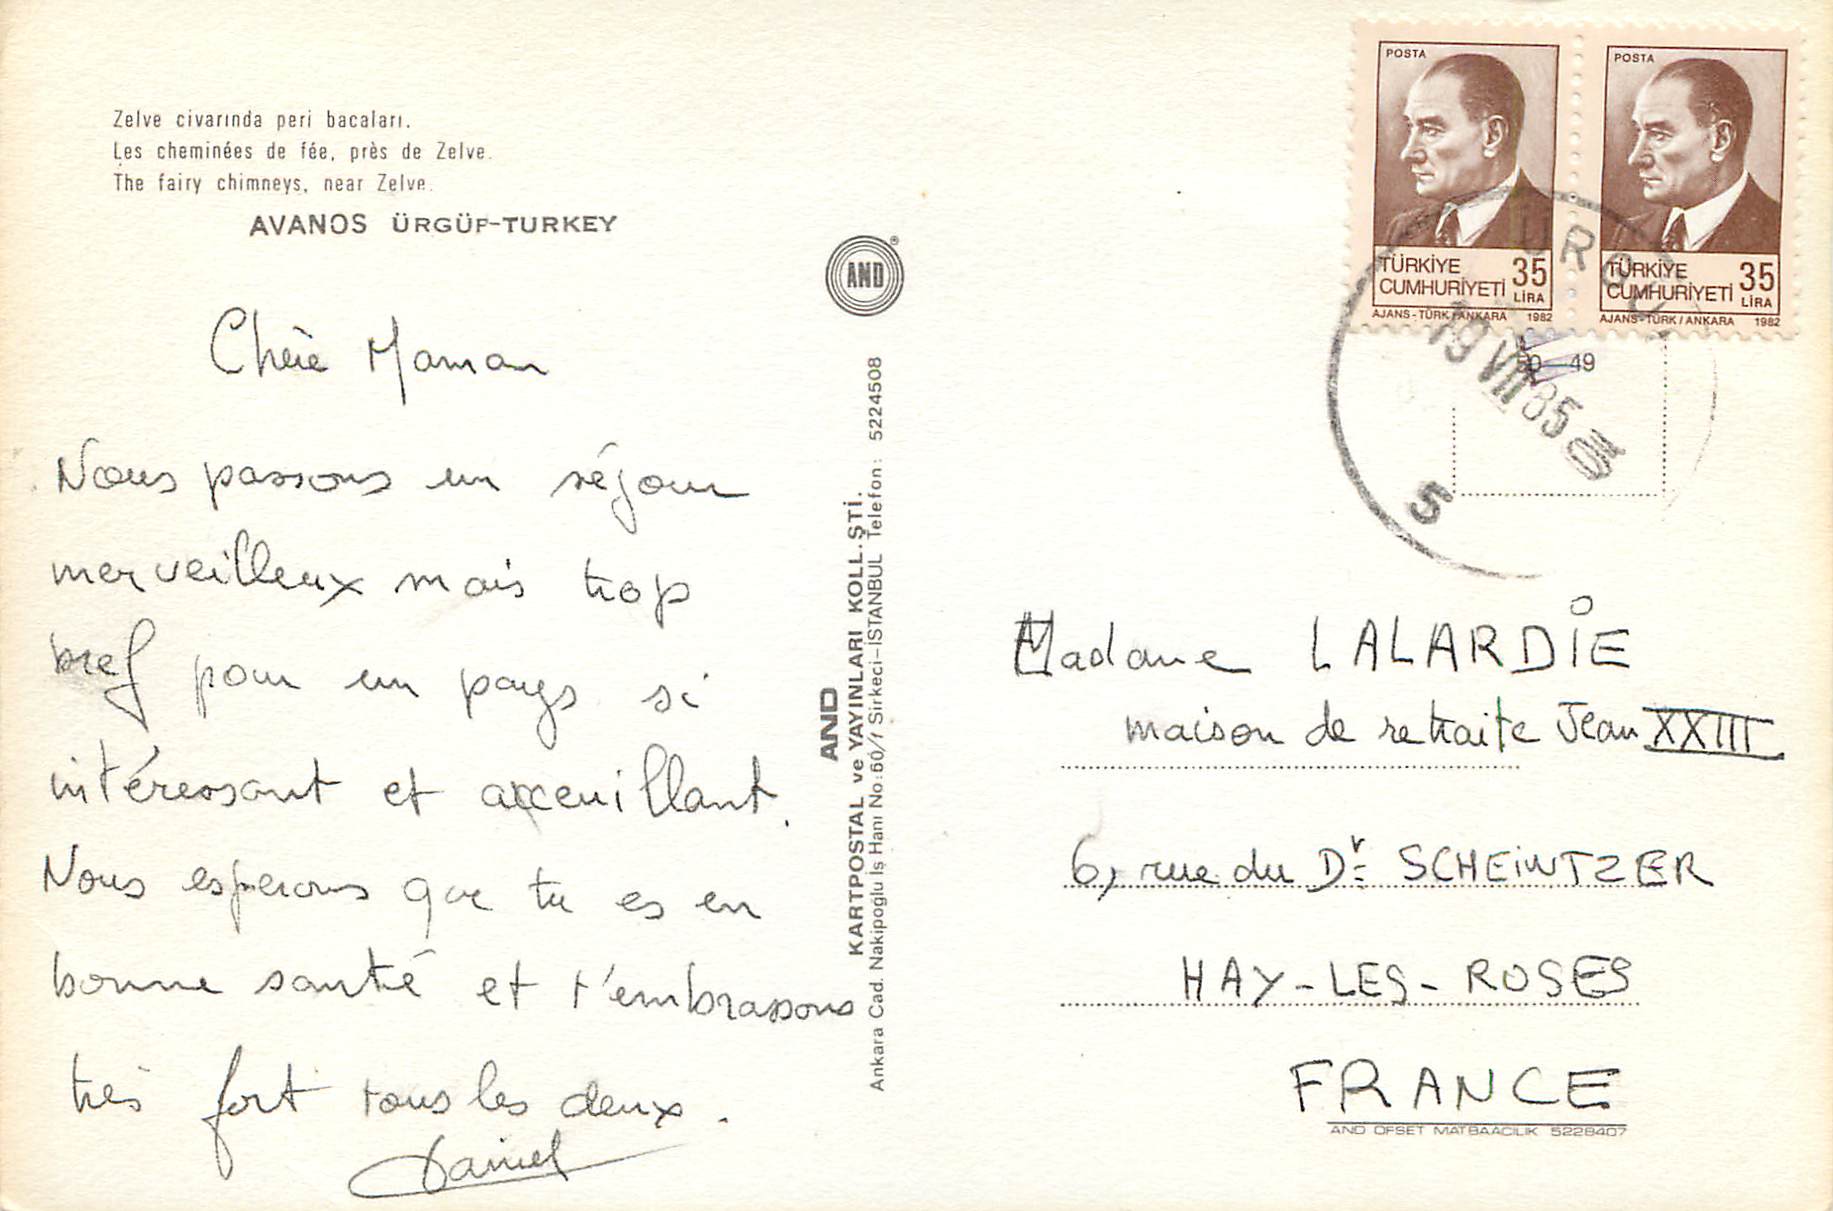 Zelve civarında peri bacaları.
Les cheminées de fée, près de Zelve.
The fairy chimneys, near Zelve.
AVANOS ÜRGÜP-TURKEY
Chère Maman
Nous passons un séjour
merveilleux mais trop
bref pour un pays si
intéressant et acceuillant.
Nous esperons que tu es en
bonne santé et t'embrassons
très fort tous les deux.
Daniel
AND
AND
KARTPOSTAL ve YAYINLARI KOLL. ŞTİ.
Ankara Cad. Nakipoğlu İş Hanı No:60/1 Sirkeci-İSTANBUL Telefon: 5224508
POSTA
TÜRKİYE
CUMHURİYETİ
35
LİRA
AJANS-TÜRK/ANKARA 1982
POSTA
TÜRKİYE
CUMHURİYETİ
35
LİRA
AJANS-TÜRK/ANKARA 1982
ÜRGÜP
50-49
5
Madame LALARDIE
maison de retraite Jean XXIII
6, rue du Dr SCHEINTZER
HAY-LES-ROSES
FRANCE
AND OFSET MATBAACILIK 5228407